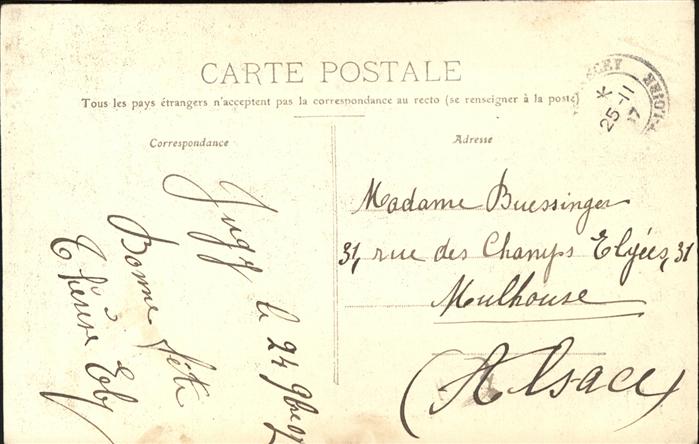 CARTE POSTALE
Tous les pays étrangers n'acceptent pas la correspondance au recto (se renseigner à la poste)
Correspondance
Jugy le 24 9bre 07
Bonne fête
Thérèse Eby
Adresse
Madame Buessinger
31, rue des Champs Elyées, 31
Mulhouse
(Alsace)
25-11